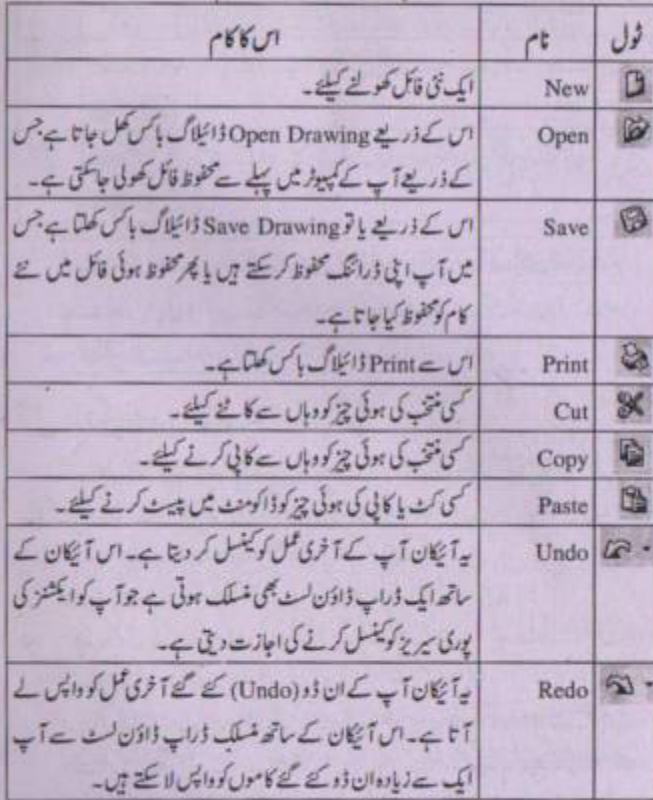 ٹول نام اس کا کام
New ایک نئی فائل کھولنے کیلئے۔
Open اس کے ذریعے Open Drawing ڈائیلاگ باکس کھل جاتا ہے جس
کے ذریعے آپ کے کمپیوٹر میں پہلے سے محفوظ فائل کھولی جاسکتی ہے۔
Save اس کے ذریعے یا تو Save Drawing ڈائیلاگ باکس کھلتا ہے جس
میں آپ اپنی ڈرائنگ محفوظ کرسکتے ہیں یا پھر محفوظ ہوئی فائل میں نئے
کام کو محفوظ کیا جاتا ہے۔
Print اس سے Print ڈائیلاگ باکس کھلتا ہے۔
Cut کسی منتخب کی ہوئی چیز کو وہاں سے کاٹنے کیلئے۔
Copy کسی منتخب کی ہوئی چیز کو وہاں سے کاپی کرنے کیلئے۔
Paste کسی کٹ یا کاپی کی ہوئی چیز کو ڈاکومنٹ میں پیسٹ کرنے کیلئے۔
Undo یہ آئیکان آپ کے آخری عمل کو کینسل کر دیتا ہے۔ اس آئیکان کے
ساتھ ایک ڈراپ ڈاؤن لسٹ بھی منسلک ہوتی ہے جو آپ کو ایکشنز کی
پوری سیریز کو کینسل کرنے کی اجازت دیتی ہے۔
Redo یہ آئیکان آپ کے ان ڈو (Undo) کئے گئے آخری عمل کو واپس لے
آتا ہے۔ اس آئیکان کے ساتھ منسلک ڈراپ ڈاؤن لسٹ سے آپ
ایک سے زیادہ ان ڈو کئے گئے کاموں کو واپس لا سکتے ہیں۔